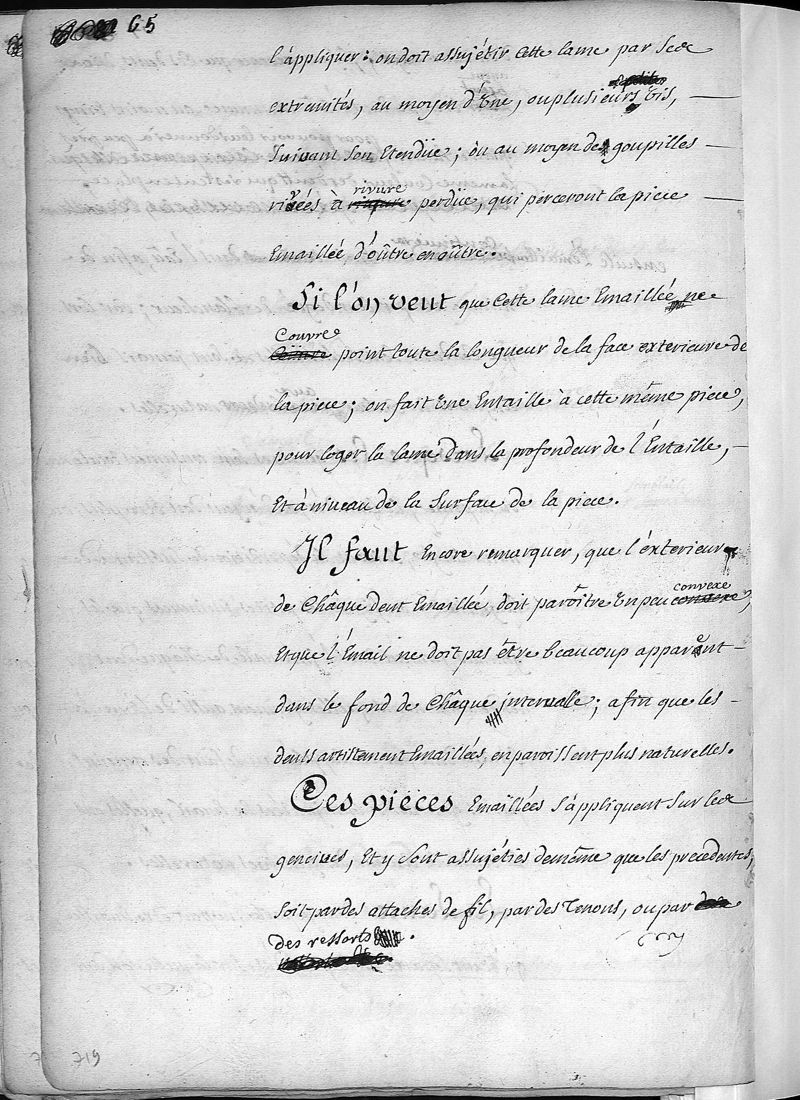 65
l'áppliquer: on doit assujétir Cette lame par Ses
extremités, au moyen d'Une, ou plusieurs petites Vis,
Suivant Son Etendüe; où au moyen de goupilles
rivées à rivure perdüe, qui perceront la piece
Emaillée d'oûtre en oûtre.
Si l'on veut que Cette lame Emaillée ne
Couvre point toute la longueur de la face exterieure de
la piece; on fait Une Entaille à cette même piece,
pour loger la lame dans la profondeur de l'Entaille,
Et à niveau de la Surface de la piece.
Il faut Encore remarquer, que l'éxterieur
de Châque dent Emaillée, doit parôitre Un peu convexe,
Et que l'Émail ne doit pas être beaucoup apparent
dans le fond de Châque intervalle; afin que les
dents artistement Emaillées, en paroissent plus naturelles.
Ces pièces Emaillées S'áppliquent Sur les
gencives, Et y Sont assujéties de même que les precedentes,
Soit par des attaches de fil, par des Tenons, ou par
des ressorts.
719